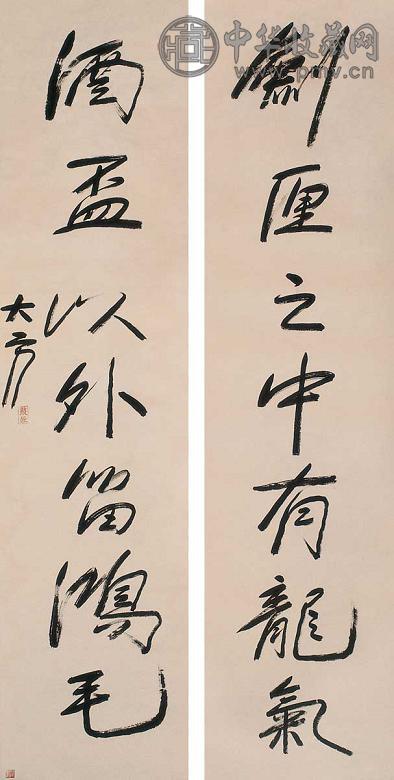 中华收藏网
www.pmv.cn
劍匣之中有龍氣
酒盃以外皆鴻毛
大方